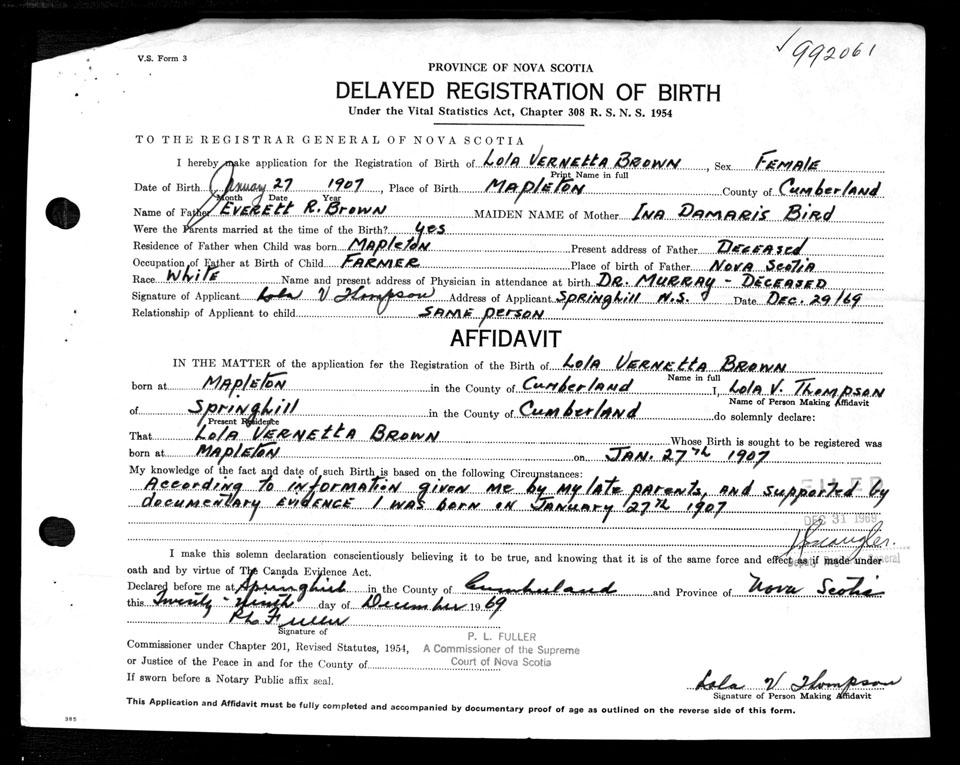 ✓992061
V.S. Form 3
PROVINCE OF NOVA SCOTIA
DELAYED REGISTRATION OF BIRTH
Under the Vital Statistics Act, Chapter 308 R. S. N. S. 1954
TO THE REGISTRAR GENERAL OF NOVA SCOTIA
I hereby make application for the Registration of Birth of LOLA VERNETTA BROWN, Sex FEMALE
Print Name in full
Date of Birth January 27 1907, Place of Birth MAPLETON County of Cumberland
Month Date Year
Name of Father EVERETT R. BROWN MAIDEN NAME of Mother INA DAMARIS BIRD
Were the Parents married at the time of the Birth? yes
Residence of Father when Child was born MAPLETON Present address of Father DECEASED
Occupation of Father at Birth of Child FARMER Place of birth of Father NOVA SCOTIA
Race WHITE Name and present address of Physician in attendance at birth DR. MURRAY - DECEASED
Signature of Applicant Lola V Thompson Address of Applicant SPRINGHILL N.S. Date DEC. 29/69
Relationship of Applicant to child SAME PERSON
AFFIDAVIT
IN THE MATTER of the application for the Registration of the Birth of LOLA VERNETTA BROWN
Name in full
born at MAPLETON in the County of Cumberland I, LOLA V. THOMPSON
Name of Person Making Affidavit
of Springhill in the County of Cumberland do solemnly declare:
Present Residence
That LOLA VERNETTA BROWN Whose Birth is sought to be registered was
born at MAPLETON on JAN. 27TH 1907
My knowledge of the fact and date of such Birth is based on the following Circumstances:
ACCORDING TO INFORMATION given me by my late parents, and supported by
documentary EVIDENCE I WAS BORN ON JANUARY 27TH 1907
FILED
DEC 31 1969
I make this solemn declaration conscientiously believing it to be true, and knowing that it is of the same force and effect as if made under
oath and by virtue of The Canada Evidence Act.
Declared before me at Springhill in the County of Cumberland and Province of Nova Scotia
this Twenty-Ninth day of December 1969
P L Fuller
Signature of
P. L. FULLER
Commissioner under Chapter 201, Revised Statutes, 1954,
A Commissioner of the Supreme
or Justice of the Peace in and for the County of
Court of Nova Scotia
If sworn before a Notary Public affix seal.
Lola V Thompson
Signature of Person Making Affidavit
This Application and Affidavit must be fully completed and accompanied by documentary proof of age as outlined on the reverse side of this form.
385